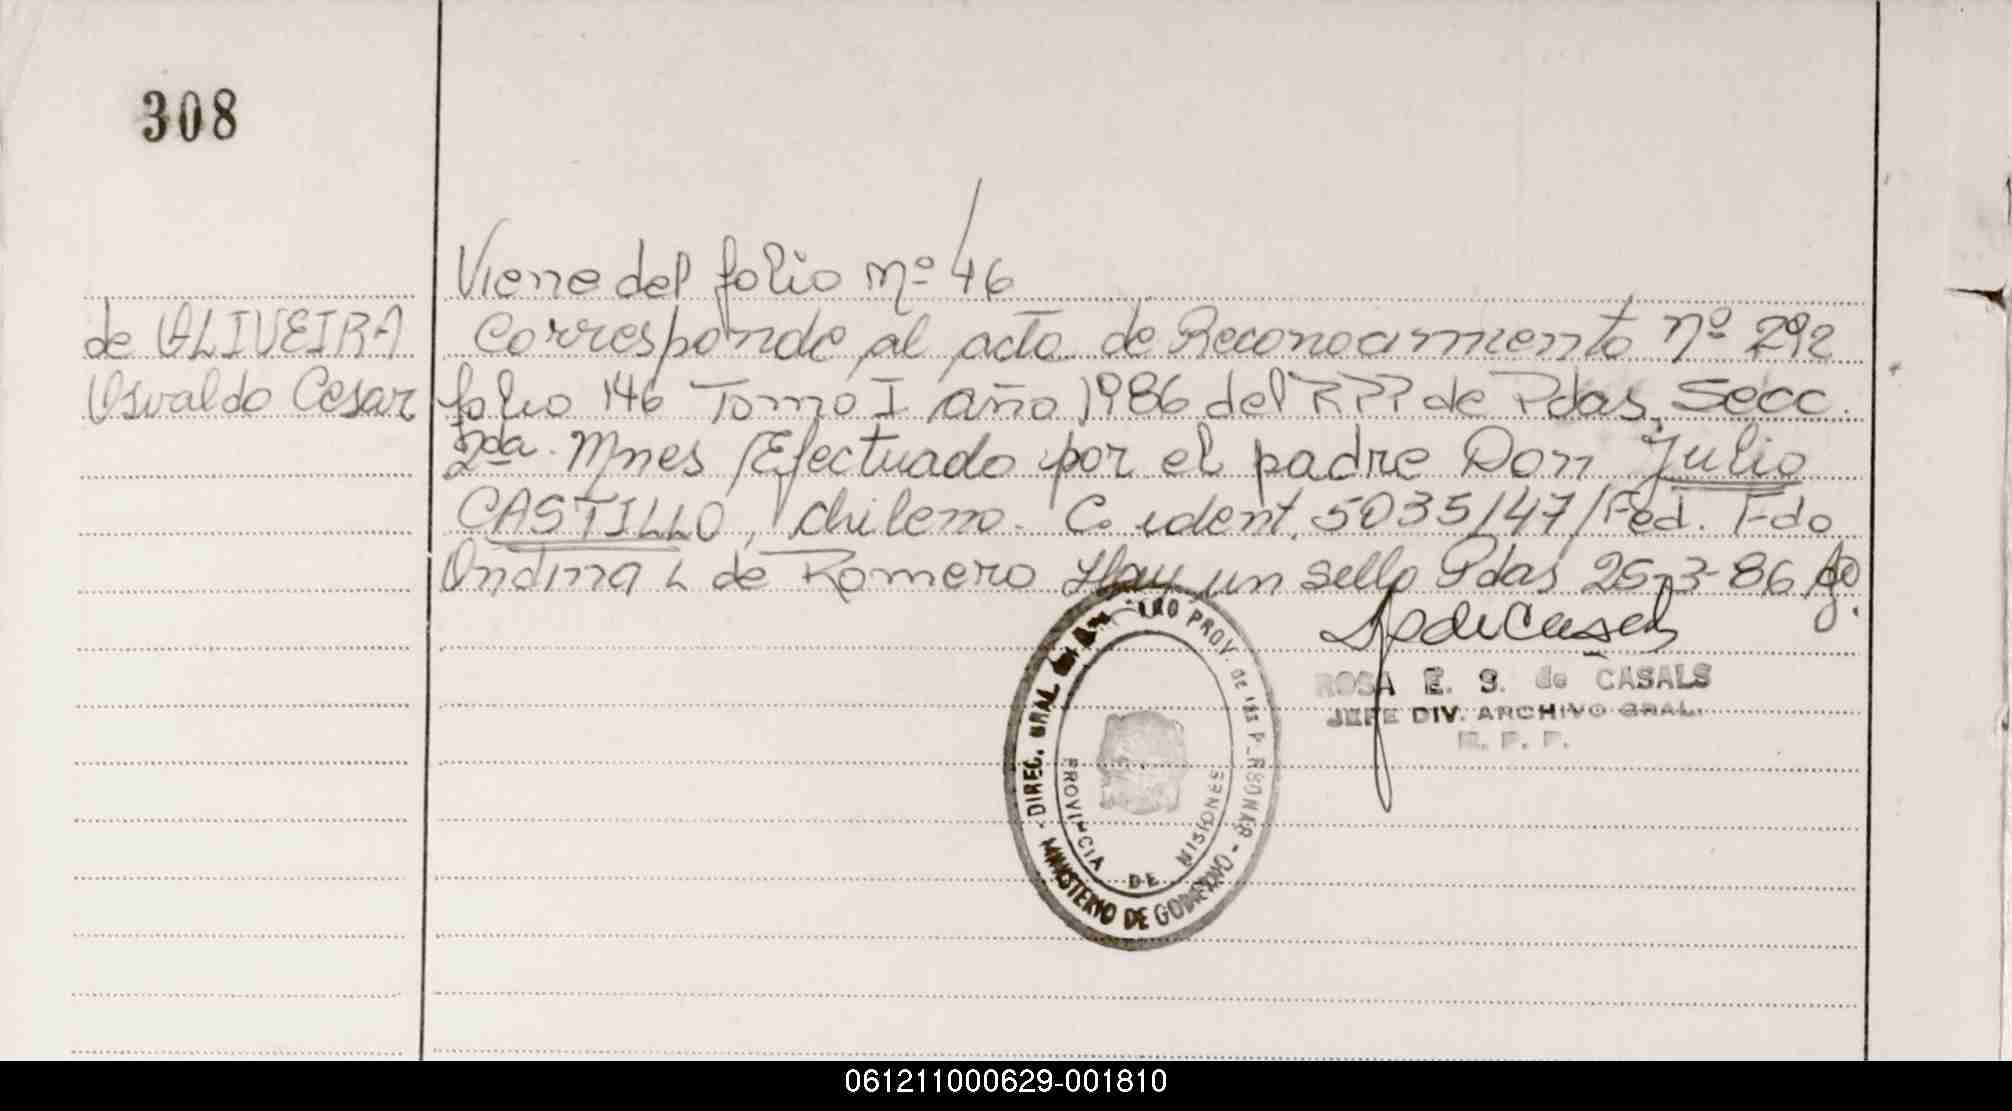 308
Viene del folio nº 46
de OLIVEIRA
Osvaldo Cesar
Corresponde al acta de Reconocimiento nº 292
folio 146 Tomo I año 1986 del RPP de Pdas, Secc.
2da. Mnes /Efectuado por el padre Don Julio
CASTILLO, chileno. C. ident. 5035/47/Fed. Fdo
Ondina L de Romero Hay un sello Pdas 25-3-86
ROSA E. S. de CASALS
JEFE DIV. ARCHIVO GRAL.
R. P. P.
DIREC. GRAL PROV. de las PERSONAS
MINISTERIO DE GOBIERNO
PROVINCIA DE MISIONES
061211000629-001810